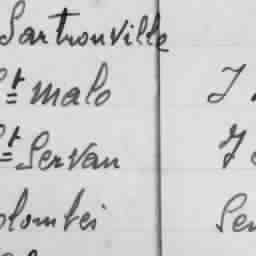 Sartrouville
St malo J
St Servan J
olombei Ser